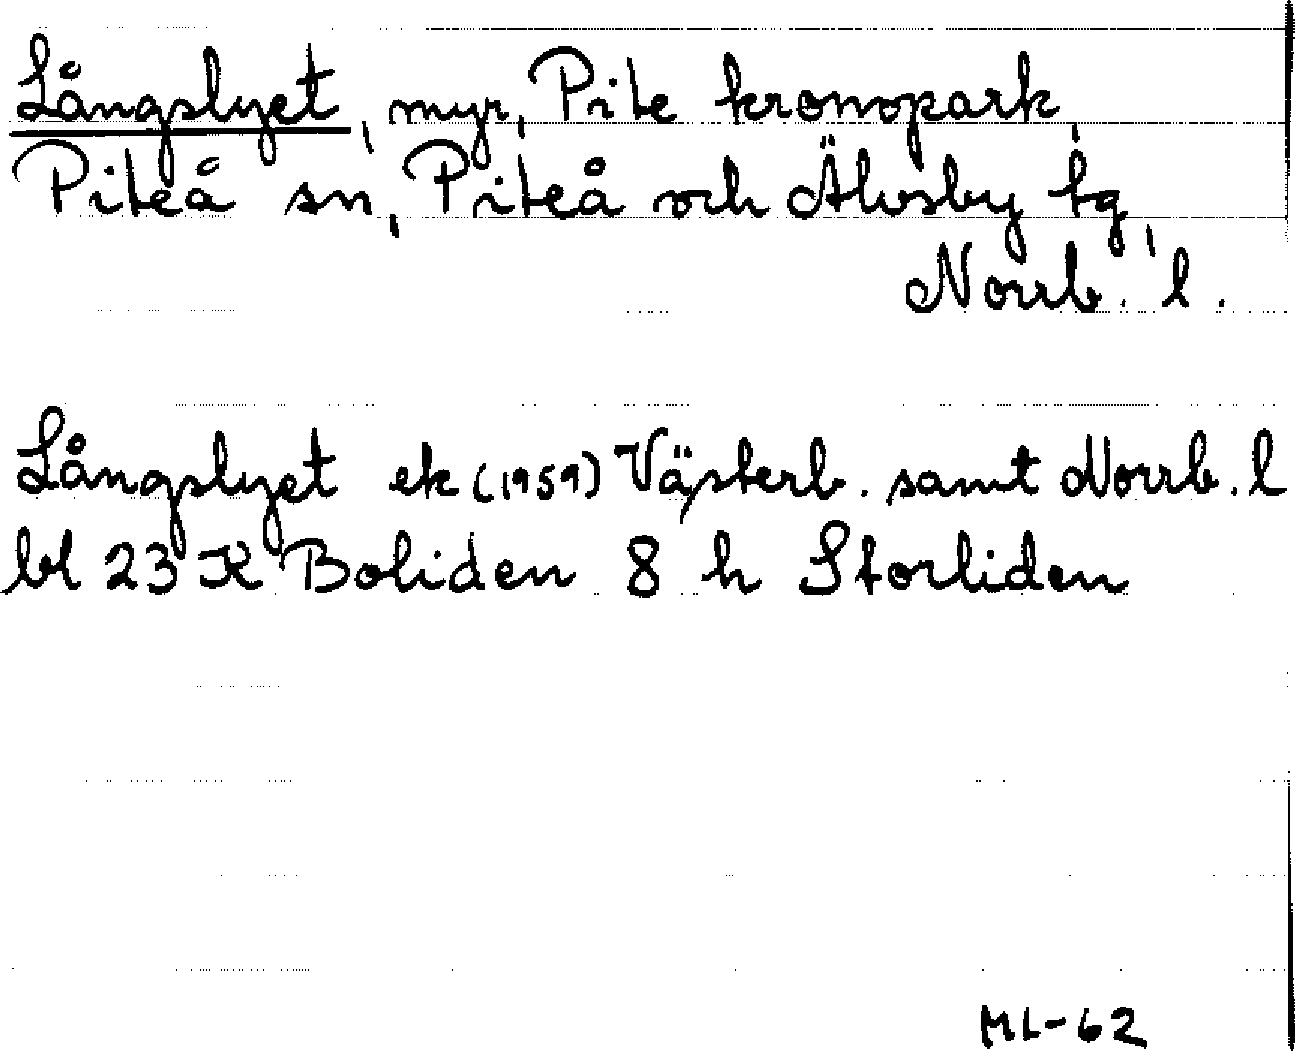 Långslyet, myr, Pite kronopark,
Piteå sn, Piteå och Älvsby tg,
Norrb. l.
Långslyet ek (1959) Västerb. samt Norrb. l
bl 23 K Boliden 8 h Storliden
ML-62